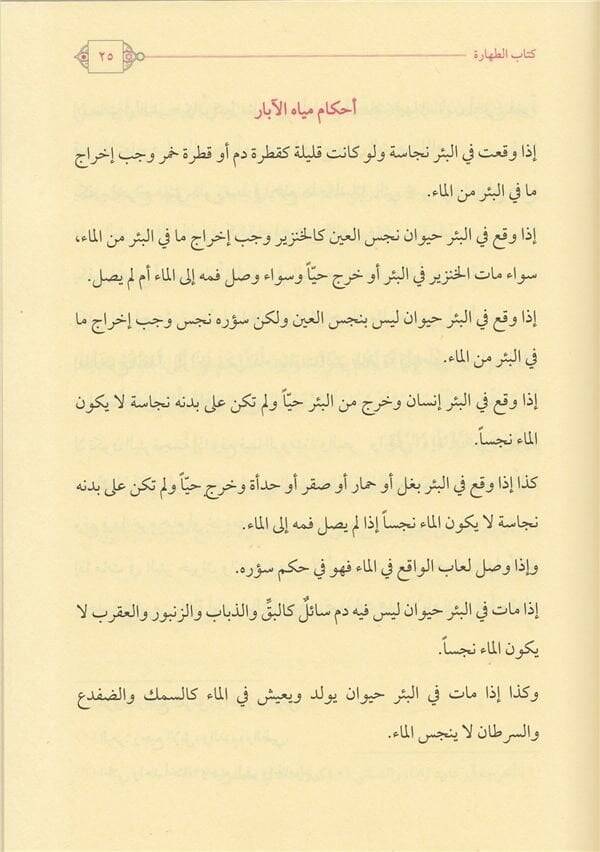 كتاب الطهارة
٢٥
أحكام مياه الآبار
إذا وقعت في البئر نجاسة ولو كانت قليلة كقطرة دم أو قطرة خمر وجب إخراج
ما في البئر من الماء.
إذا وقع في البئر حيوان نجس العين كالخنزير وجب إخراج ما في البئر من الماء،
سواء مات الخنزير في البئر أو خرج حيّاً وسواء وصل فمه إلى الماء أم لم يصل.
إذا وقع في البئر حيوان ليس بنجس العين ولكن سؤره نجس وجب إخراج ما
في البئر من الماء.
إذا وقع في البئر إنسان وخرج من البئر حيّاً ولم تكن على بدنه نجاسة لا يكون
الماء نجساً.
كذا إذا وقع في البئر بغل أو حمار أو صقر أو حدأة وخرج حيّاً ولم تكن على بدنه
نجاسة لا يكون الماء نجساً إذا لم يصل فمه إلى الماء.
وإذا وصل لعاب الواقع في الماء فهو في حكم سؤره.
إذا مات في البئر حيوان ليس فيه دم سائلٌ كالبقِّ والذباب والزنبور والعقرب لا
يكون الماء نجساً.
وكذا إذا مات في البئر حيوان يولد ويعيش في الماء كالسمك والضفدع
والسرطان لا ينجس الماء.